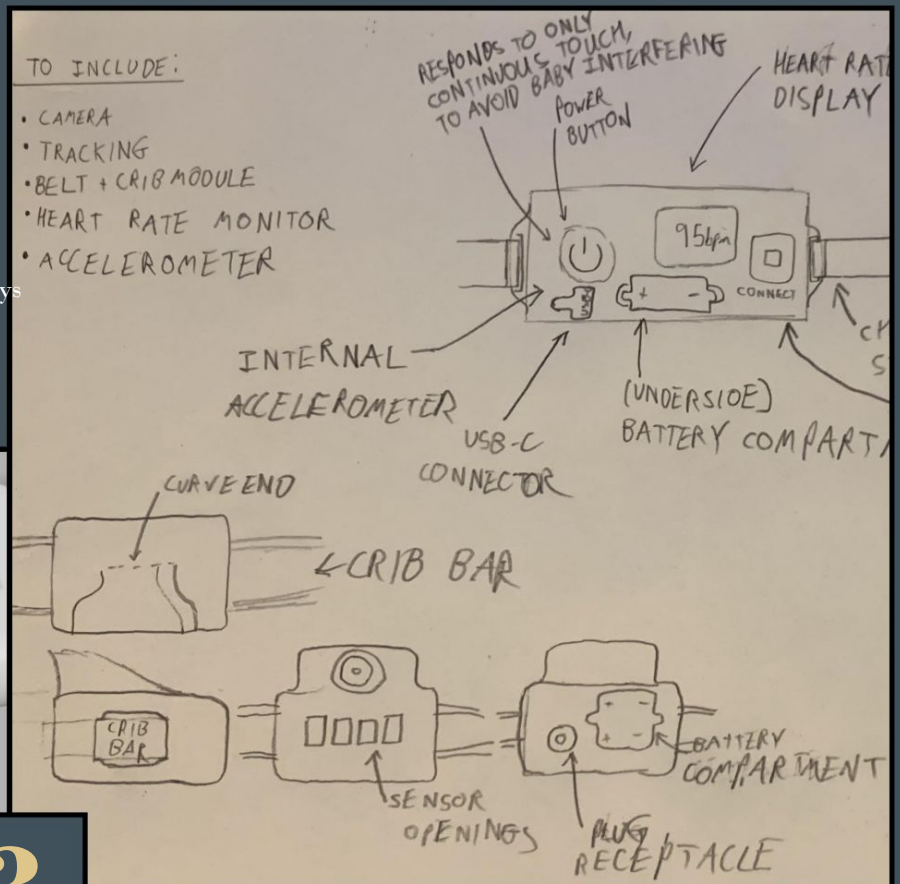 TO INCLUDE:
• CAMERA
• TRACKING
• BELT + CRIB MODULE
• HEART RATE MONITOR
• ACCELEROMETER
RESPONDS TO ONLY
CONTINUOUS TOUCH,
TO AVOID BABY INTERFERING
POWER
BUTTON
HEART RAT
DISPLAY
95bpm
CONNECT
+ -
INTERNAL
ACCELEROMETER
USB-C
CONNECTOR
(UNDERSIDE)
BATTERY COMPART
CURVE END
CRIB BAR
CRIB
BAR
SENSOR
OPENINGS
- -
+ -
BATTERY
COMPARTMENT
PLUG
RECEPTACLE